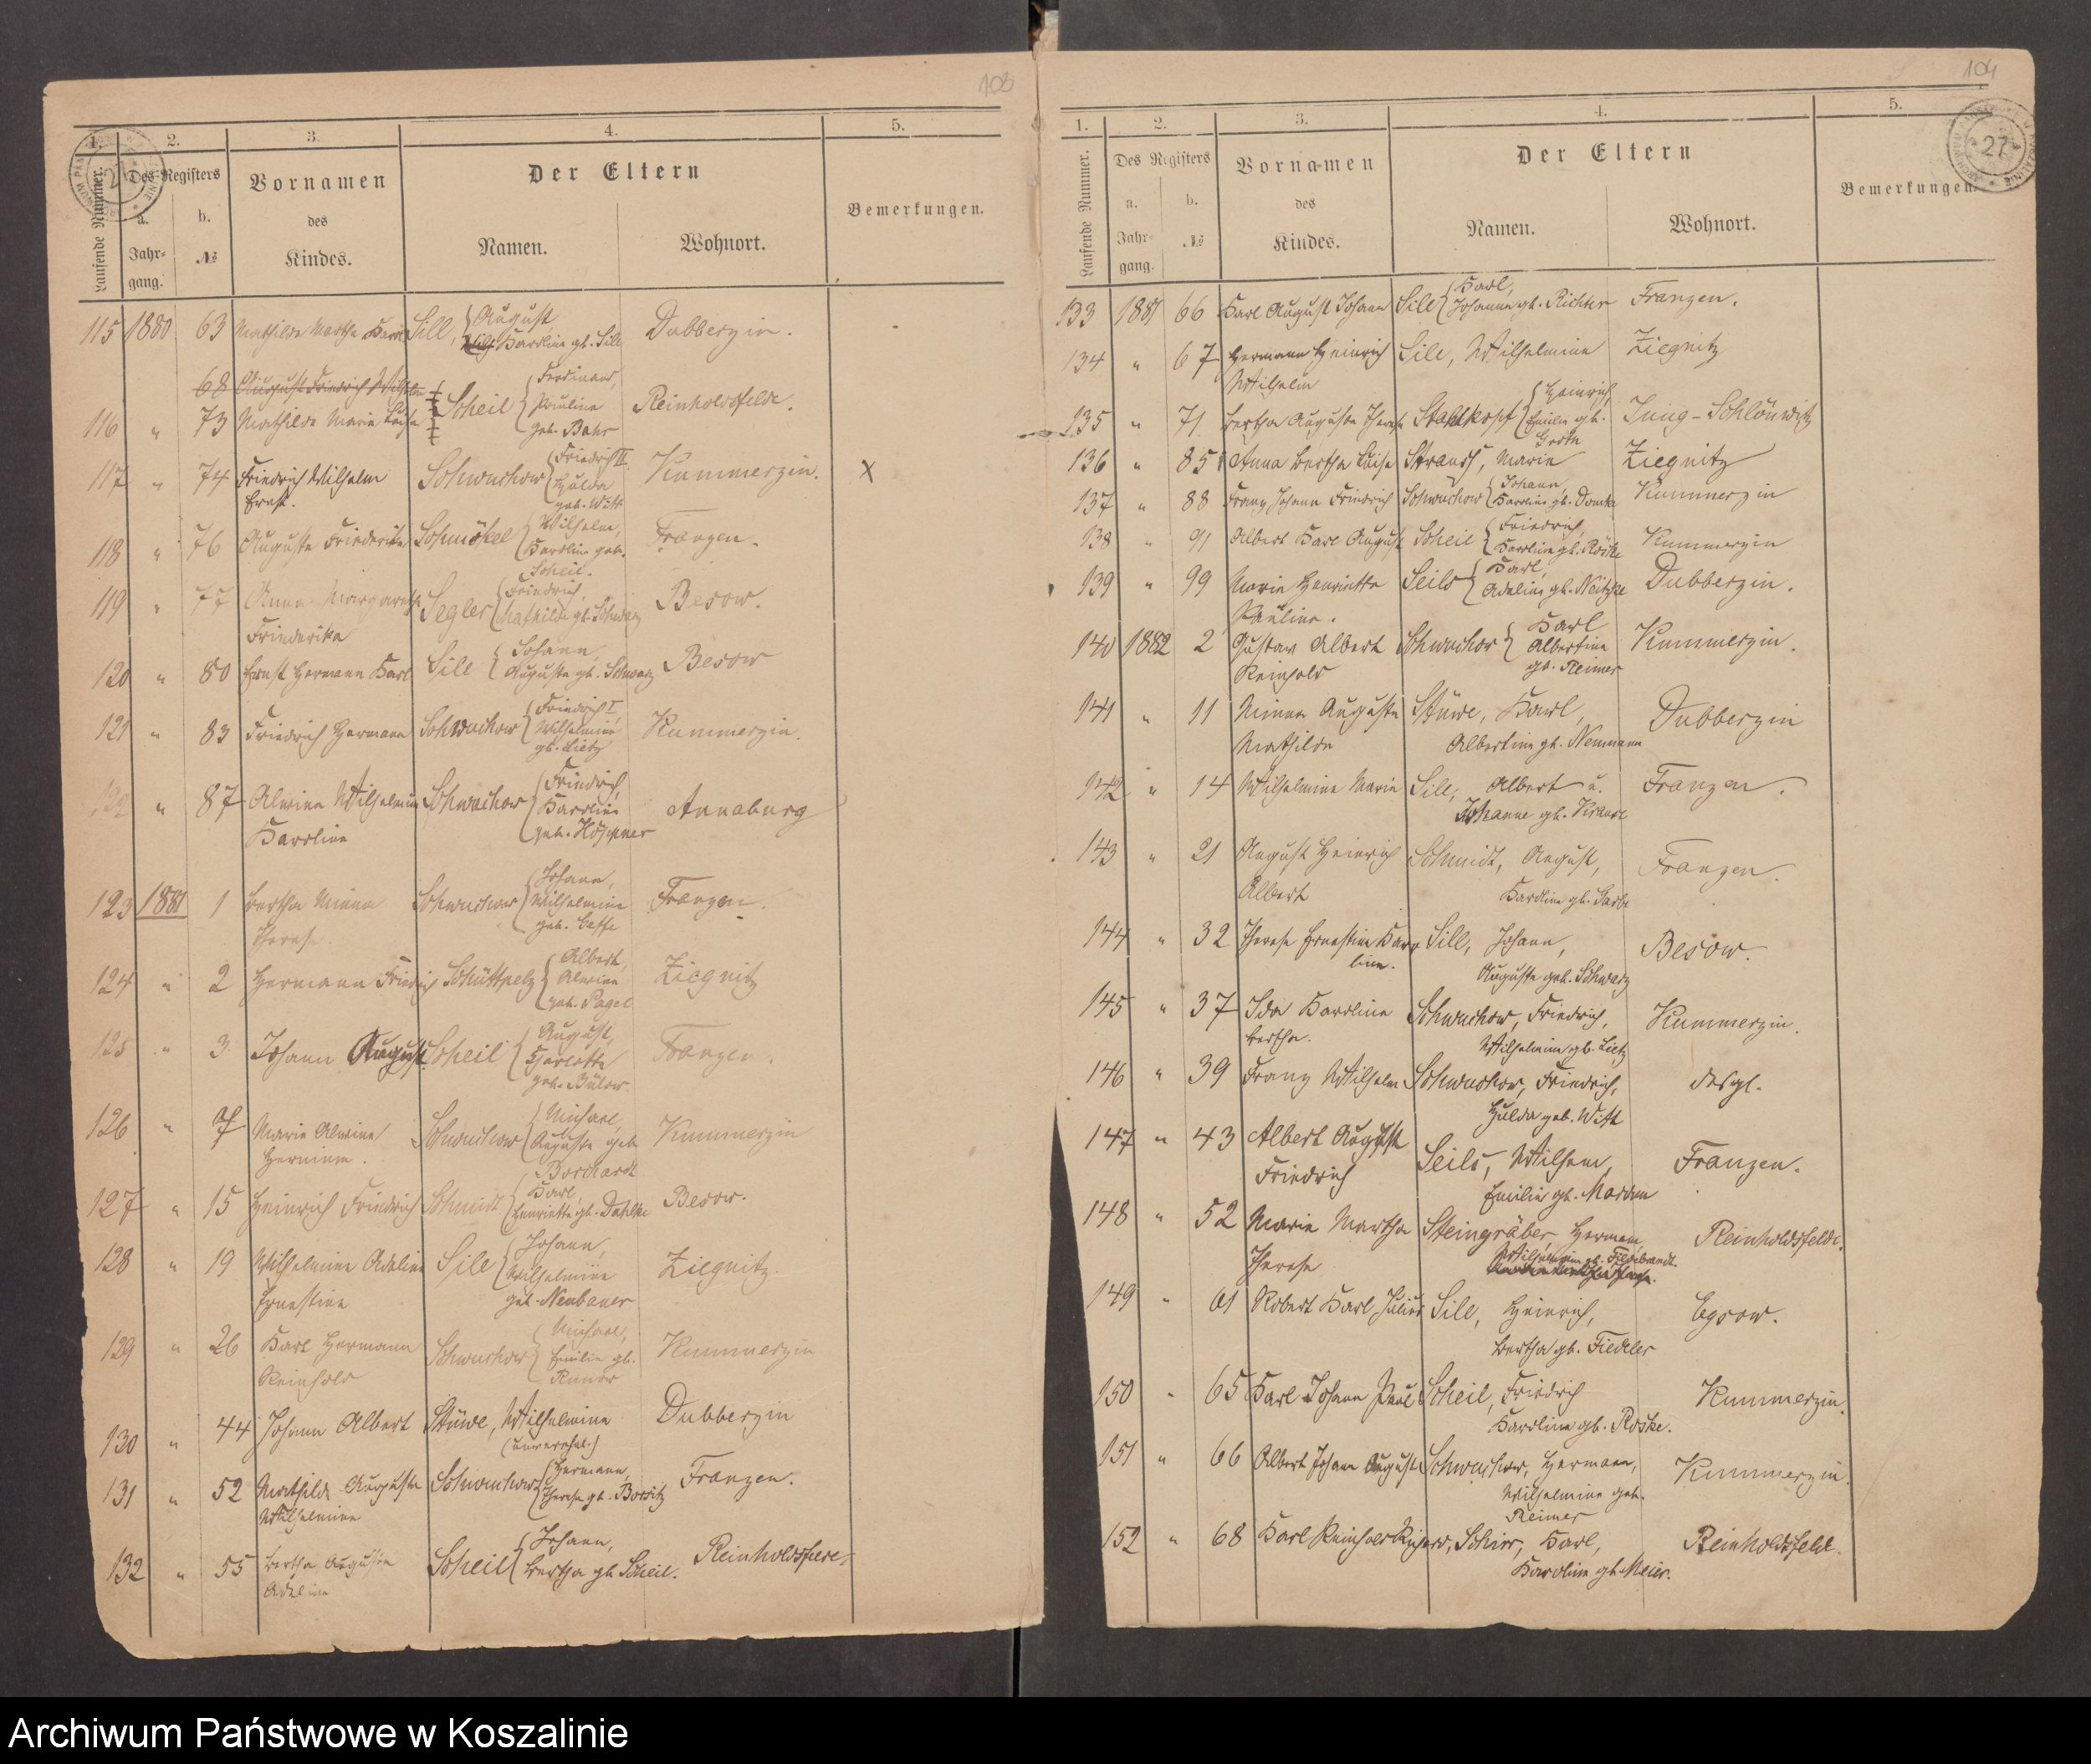 103
1.
2.
3.
4.
5.
Laufende Nummer.
Des Registers
Vornamen
Der Eltern
Bemerkungen.
a.
b.
des
Jahr-
gang.
№
Kindes.
Namen.
Wohnort.
115 1880 63 Mathilde Martha Sill, August, Dubberzin.
Karoline gb. Sill
68 August Friedrich Wilhelm
116 " 73 Mathilde Marie Luise Scheil Ferdinand, Reinholdsfelde.
Pauline
geb. Bahr
117 " 74 Friedrich Wilhelm Schwuchow Friedrich II Kummerzin. X
Ernst. Hulda
geb. Witt
118 " 76 Auguste Friederike Schmökel Wilhelm, Franzen.
Karoline geb.
Scheil.
119 " 77 Anna Margareth Segler Friedrich, Besow.
Friederike Mathilde gb. Schwarz
120 " 80 Ernst Hermann Karl Sill Johann, Besow
Auguste gb. Schwarz
121 " 83 Friedrich Hermann Schwuchow Friedrich I Kummerzin.
Wilhelmine
gb. Lietz
122 " 87 Alwine Wilhelmine Schwuchow Friedrich, Annaburg
Karoline Karoline
geb. Höppner
123 1881 1 Bertha Minna Schwuchow Johann, Franzen.
Therese. Wilhelmine
124 " 2 Hermann Friedrich Schüttpelz Albert, Ziegnitz
Alwine
geb. Pagel
125 " 3 Johann August Scheil August, Franzen.
geb. Bülow.
126 " 7 Marie Alwine Schwuchow Michael, Kummerzin
Hermine. Auguste geb.
Borchardt
127 " 15 Heinrich Friedrich Schmidt Karl, Besow.
Henriette gb. Dahlke
128 " 19 Wilhelmine Adeline Sill Johann, Ziegnitz.
Ernestine Wilhelmine
geb. Neubauer
129 " 26 Karl Hermann Schwuchow Michael, Kummerzin
Reinhold Emilie gb.
130 " 44 Johann Albert Stüwe, Wilhelmine Dubberzin
(unverehel.)
131 " 52 Mathilde Auguste Schwuchow Hermann, Franzen.
Wilhelmine Therese gb.
132 " 55 Bertha Auguste Scheil Johann, Reinholdsfelde.
Adeline Bertha gb. Scheil.
104
1.
2.
3.
4.
5.
27
Laufende Nummer.
Des Registers
Vornamen
Der Eltern
Bemerkungen.
a.
b.
des
Jahr-
gang.
№
Kindes.
Namen.
Wohnort.
133 1881 66 Karl August Johann Sill Karl, Franzen.
Johanne gb. Richter
134 " 67 Hermann Heinrich Sill, Wilhelmine Ziegnitz
Wilhelm
135 " 71 Bertha Auguste Therese Stahlkopf Heinrich, Jung-Schlönwitz
Emilie gb.
Groth
136 " 85 Anna Bertha Luise Strauß, Marie Ziegnitz
137 " 88 Franz Johann Friedrich Schwuchow Johann, Kummerzin
Karoline gb.
138 " 91 Albert Karl August Scheil Friedrich, Kummerzin
Karoline gb. Röske
139 " 99 Marie Henriette Seils Karl, Dubberzin.
Pauline. Adeline gb. Neitzke
140 1882 2 Gustav Albert Schwuchow Karl Kummerzin.
Reinhold Albertine
gb. Reimer
141 " 11 Minna Auguste Stüwe, Karl, Dubberzin
Mathilde Albertine gb. Neumann
142 " 14 Wilhelmine Marie Sill, Albert u. Franzen.
Johanne gb. Krause
143 " 21 August Heinrich Schmidt, August, Franzen.
Albert Karoline gb. Garbe
144 " 32 Therese Ernestine Karo Sill, Johann, Besow.
line. Auguste geb. Schwarz
145 " 37 Ida Karoline Schwuchow, Friedrich, Kummerzin.
Bertha. Wilhelmine gb. Lietz
146 " 39 Franz Wilhelm Schwuchow, Friedrich, desgl.
Hulda geb. Witt
147 " 43 Albert August
Friedrich Seils, Wilhelm, Franzen.
Emilie gb.
148 " 52 Marie Martha Steingräber, Hermann, Reinholdsfelde.
Therese Wilhelmine gb. Hildebrandt.
149 " 61 Robert Karl Julius Sill, Heinrich, Egsow.
Bertha gb. Fiedler
150 " 65 Karl Johann Paul Scheil, Friedrich Kummerzin.
Karoline gb. Röske.
151 " 66 Albert Johann August Schwuchow, Hermann, Kummerzin.
Wilhelmine geb.
Reimer
152 " 68 Karl Reinhold Richard, Schirr, Karl, Reinholdsfelde.
Karoline gb. Meier.
Archiwum Państwowe w Koszalinie